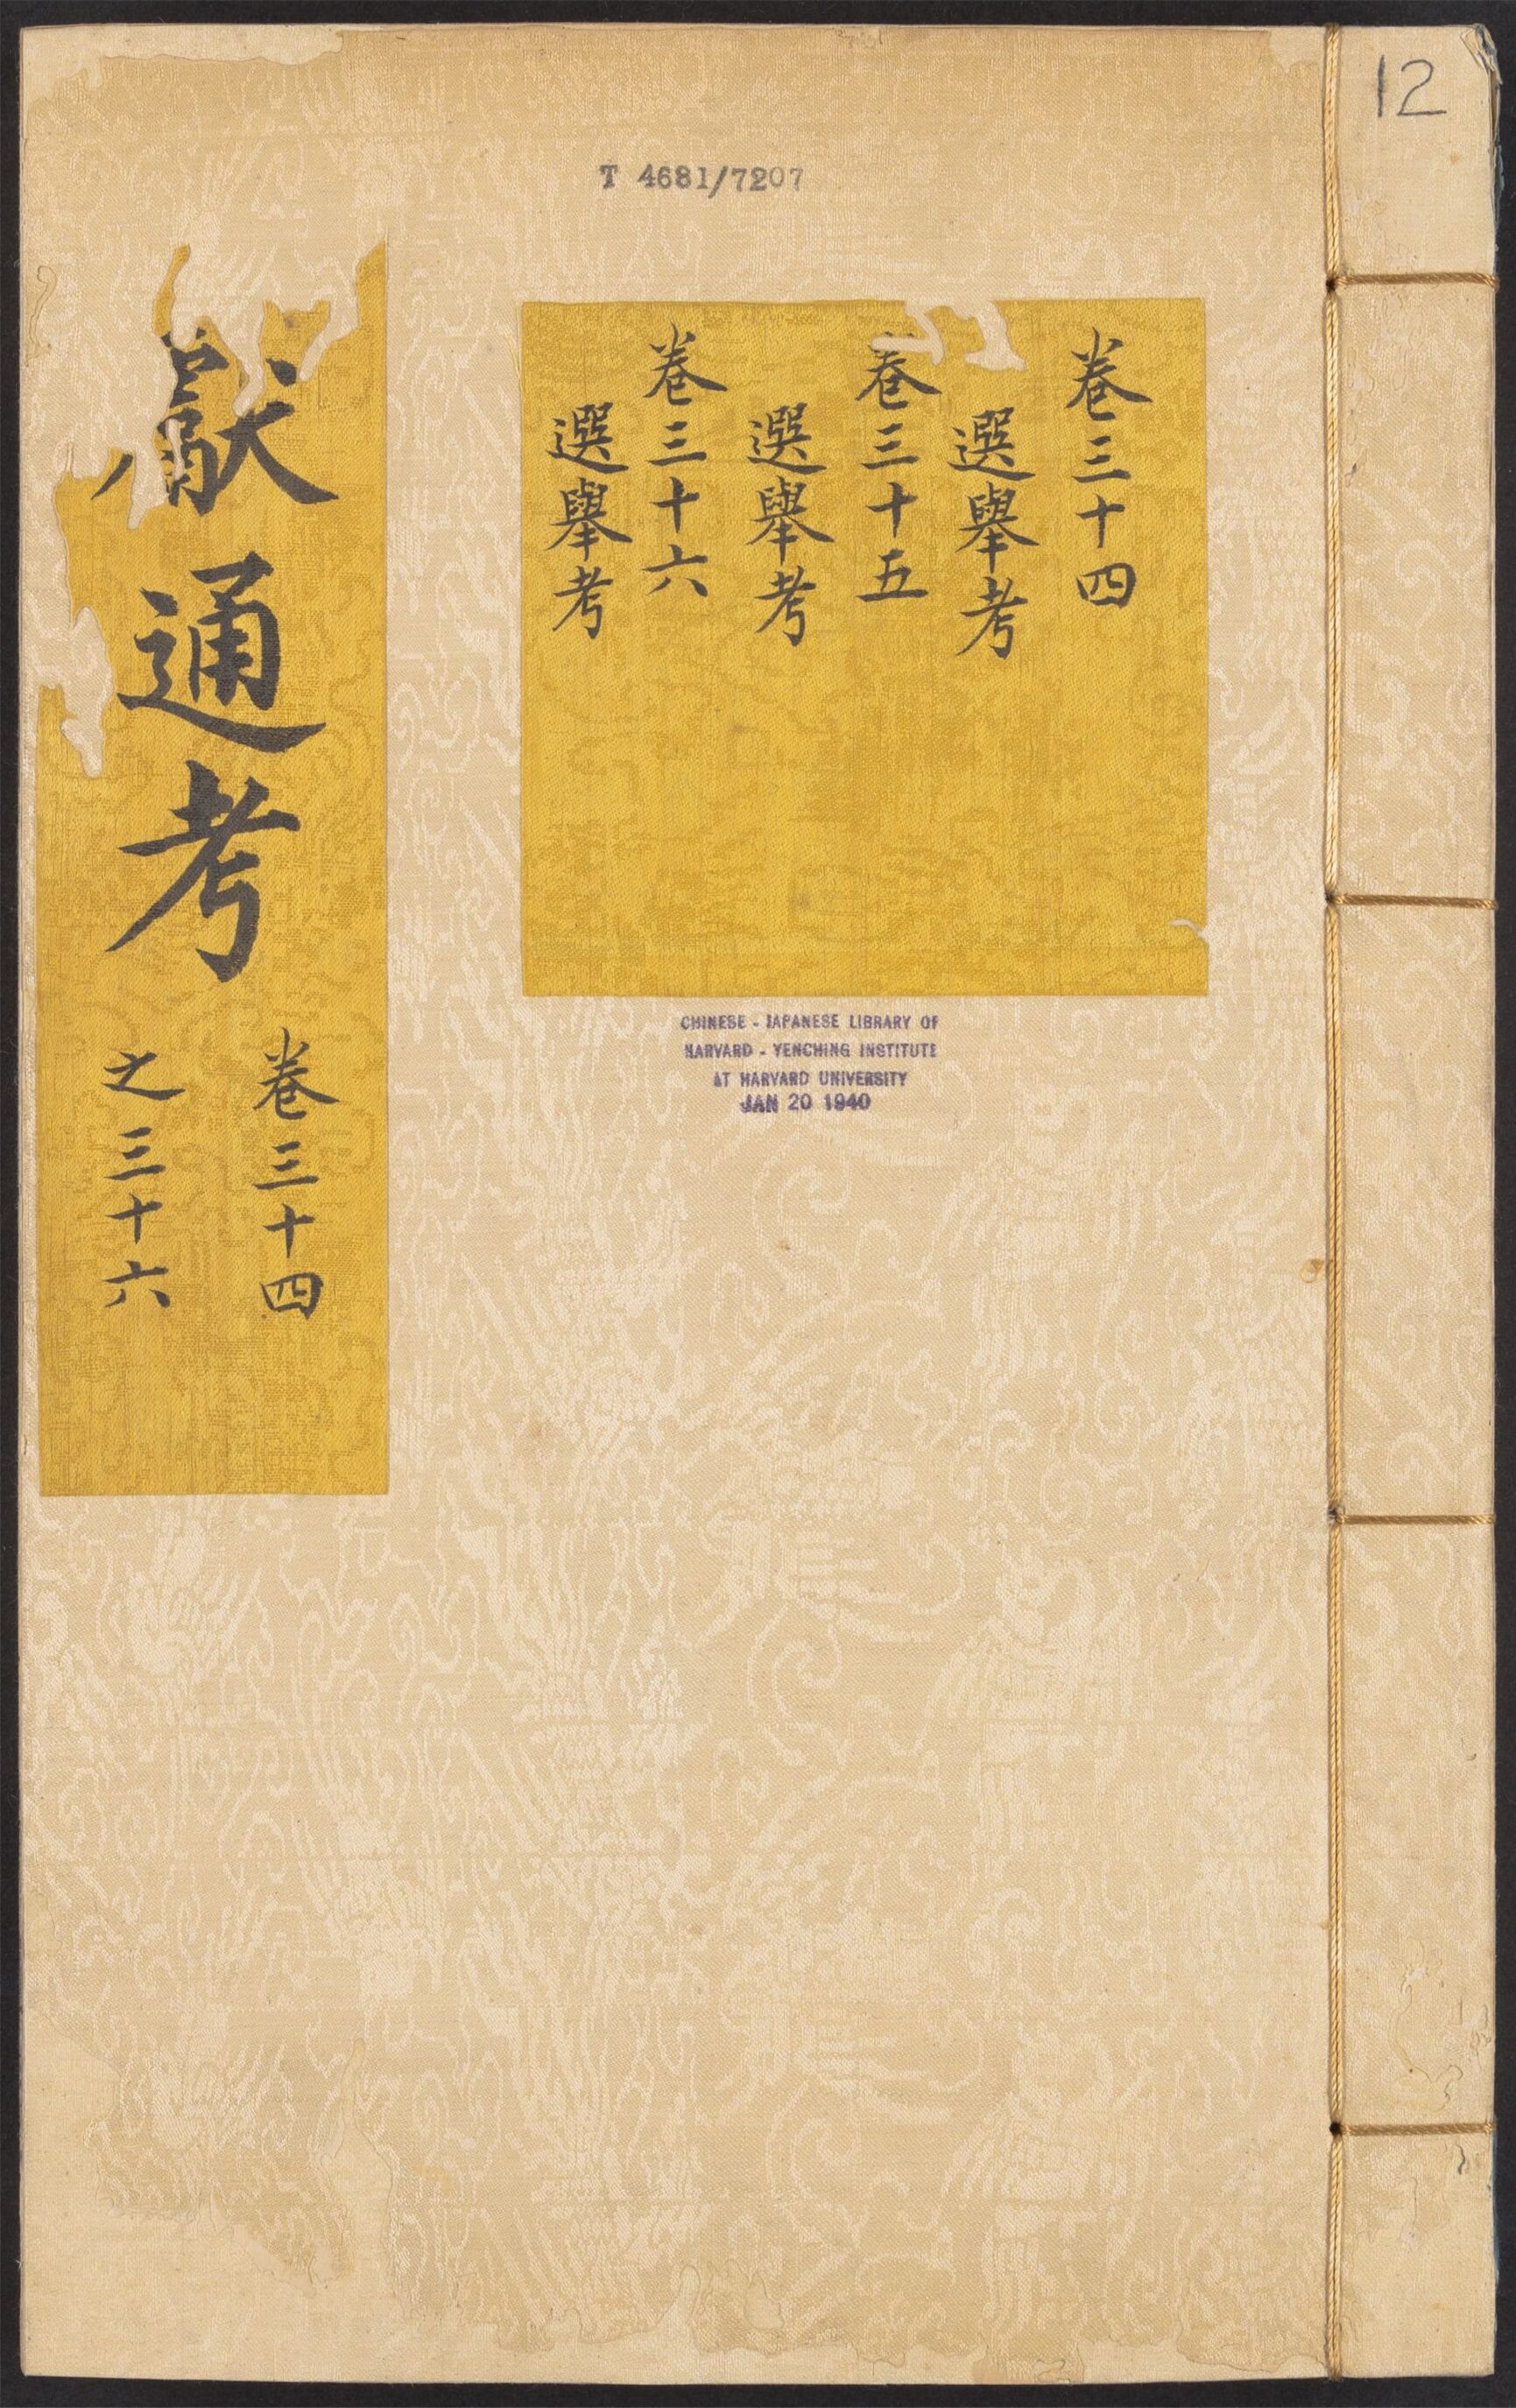 12
T 4681/7207
卷三十四
選舉考
卷三十五
選舉考
卷三十六
選舉考
獻通考
卷三十四
之三十六
CHINESE - JAPANESE LIBRARY OF
HARVARD - YENCHING INSTITUTE
AT HARVARD UNIVERSITY
JAN 20 1940